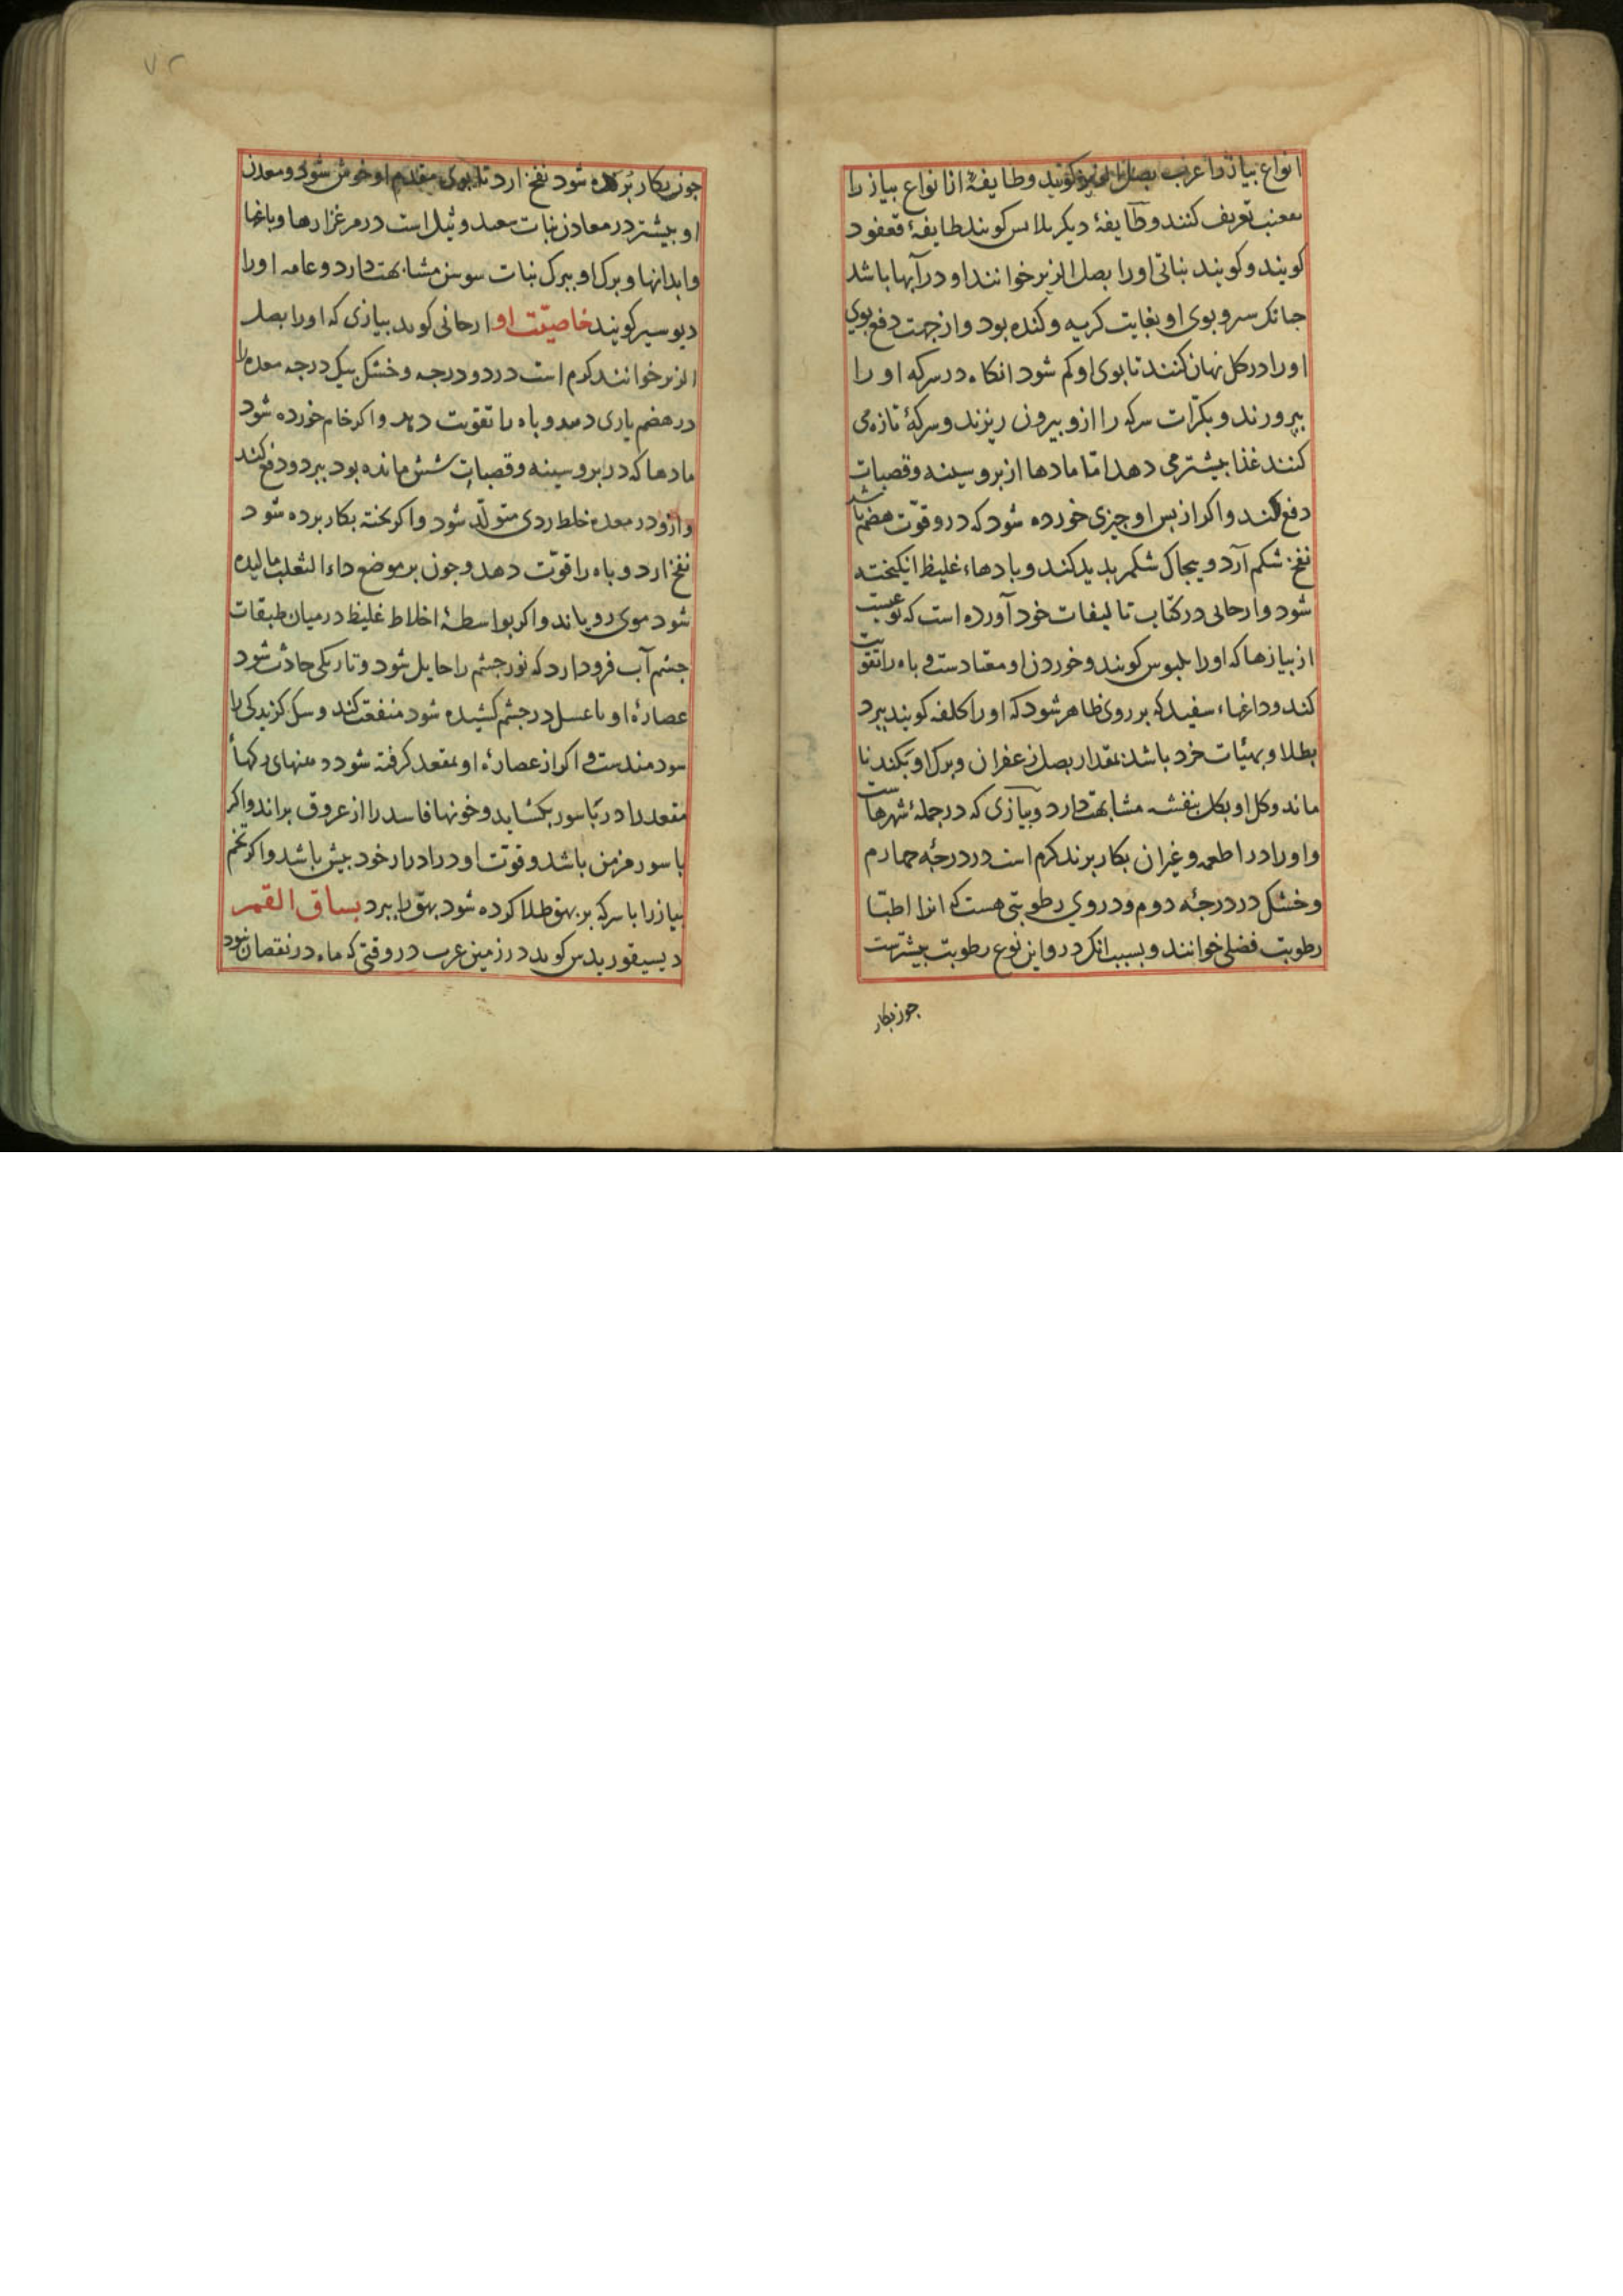 انواع بیاز را عرب بصل کویند و طایفهٔ از انواع بیاز را
تعریف کنند و طایفهٔ دیکر بلاس کویند طایفهٔ قعفود
کویند و کویند نباتی اورا بصل الزیر خوانند او در آبها باشد
جانک سر و بوی او بغایت کریه و کنده بود و از جهت دفع بوی
اورا در کل نهان کنند تا بوی او کم شود انکاه در سرکه او را
بپرورند و بکرّات سرکه را ازو بیرون ریزند و سرکهٔ تازه می
کنند غذا بیشتر می دهد امّا مادها از بر و سینه و قصبات
دفع کند و اکر از بس او جیزی خورده شود که درو قوّت هضم باشد
نفخ شکم آرد و بیجاک شکم بدید کند و بادهاء غلیظ انکیخته
شود و ارحانی در کتاب تالیفات خود آورده است که نوعیست
از بیازها که اورا بلبوس کویند و خوردن او معتادست و باه را تقویت
کند و داغهاء سفید که بر روی ظاهر شود که اورا کلفه کویند ببرد
بطلا و بهیّات خرد باشد بمقدار بصل زعفران و برک او بکندنا
ماند و کل او بکل بنفشه مشابهت دارد و بیازی که در جملهٔ شهرهاست
و اورا در اطعمه و غیر ان بکار برند کرم است در درجهٔ جهارم
و خشک در درجهٔ دوم و در وی رطوبتی هست که انرا اطبّا
رطوبت فضلی خوانند و بسبب انکه درو این نوع رطوبت بیشترست
جون بکار
۷۲
جون بکار برده شود نفخ ارد تا بوی مقدم او خوش شود و معدن
او بیشتر در معادن نبات سعد و ثیل است در مرغزارها و باغها
و ابدانها و برک او ببرک نبات سوسن مشابهت دارد و عامه اورا
دیوسیر کویند خاصیّت او ارحانی کوید بیازی که اورا بصل
الزیر خوانند کرم است در دو درجه و خشک بیک درجه معده را
در هضم یاری دهد و باه را تقویت دهد و اکر خام خورده شود
مادها که در بر و سینه و قصبات شش مانده بود ببرد و دفع کند
وازو در معده خلط ردی متولّد شود و اکر بخته بکار برده شود
نفخ ارد و باه را قوّت دهد و جون بر موضع داء الثعلب مالیده
شود موی رویاند و اکر بواسطهٔ اخلاط غلیظ در میان طبقات
جشم آب فرود آرد که نور جشم را حایل شود و تاریکی حادث شود
عصارهٔ او با عسل در جشم کشیده شود منفعت کند و سک کزیدکی را
سودمندست و اکر از عصارهٔ او بمقعد کرفته شود دهنهای رکهاء
مقعد را در بّاسور بکشاید و خونها فاسد را از عروق براند و اکر
باسور مزمن باشد و قوّت او در ادرار خود بیش باشد و اکر تخم
بیاز را با سرکه بر بهق طلا کرده شود بهق را ببرد بساق القمر
دیسیقوریدس کوید در زمین عرب در وقتی که ماه در نقصان بود